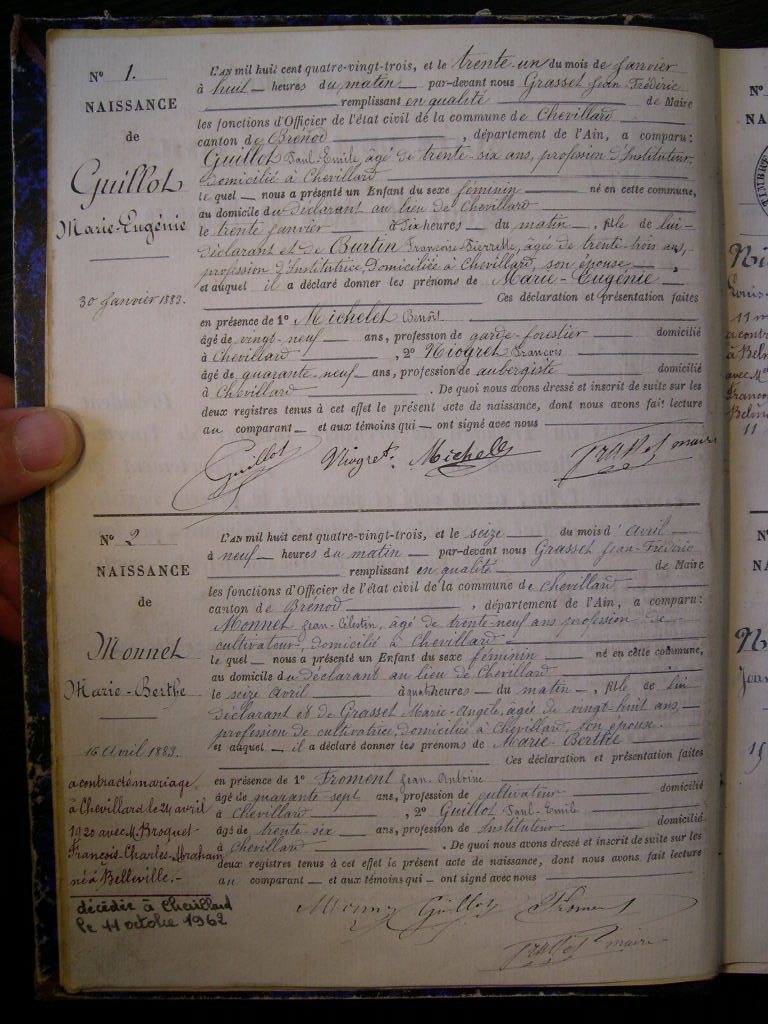 N° 1.
NAISSANCE
de
Guillot
Marie-Eugénie
30 Janvier 1883.
L'AN mil huit cent quatre-vingt-trois, et le trente-un du mois de Janvier
à huit heures du matin par-devant nous Grasset Jean Frédéric
remplissant en qualité de Maire
les fonctions d'Officier de l'état civil de la commune de Chevillard
canton de Brénod, département de l'Ain, a comparu:
Guillot Paul-Emile, âgé de trente-six ans, profession d'Instituteur,
domicilié à Chevillard
le quel nous a présenté un Enfant du sexe féminin né en cette commune,
au domicile du déclarant au lieu de Chevillard
le trente janvier à six heures du matin, fille de lui-
déclarant et de Burtin Françoise-Pierrette, âgée de trente-trois ans,
profession d'Institutrice, domiciliée à Chevillard, son épouse,
et auquel il a déclaré donner les prénoms de Marie-Eugénie
Ces déclaration et présentation faites
en présence de 1° Michelet Benoît
âgé de vingt-neuf ans, profession de garde-forestier domicilié
à Chevillard, 2° Niogret François
âgé de quarante-neuf ans, profession de aubergiste domicilié
à Chevillard. De quoi nous avons dressé et inscrit de suite sur les
deux registres tenus à cet effet le présent acte de naissance, dont nous avons fait lecture
au comparant et aux témoins qui ont signé avec nous
Guillot Niogret. Michelet Grasset maire
N° 2
NAISSANCE
de
Monnet
Marie-Berthe
16 Avril 1883.
a contracté mariage
à Chevillard le 24 avril
1920 avec M. Broquet
François-Charles-Abraham
né à Belleville.-
décédée à Chevillard
le 11 octobre 1962
L'AN mil huit cent quatre-vingt-trois, et le seize du mois d'avril
à neuf heures du matin par-devant nous Grasset Jean-Frédéric
remplissant en qualité de Maire
les fonctions d'Officier de l'état civil de la commune de Chevillard
canton de Brénod, département de l'Ain, a comparu:
Monnet Jean-Célestin, âgé de trente-neuf ans profession de
cultivateur, domicilié à Chevillard
le quel nous a présenté un Enfant du sexe féminin né en cette commune,
au domicile du déclarant au lieu de Chevillard
le seize avril à quatre heures du matin, fille de lui
déclarant et de Grasset Marie-Angèle, âgée de vingt-huit ans,
profession de cultivatrice, domiciliée à Chevillard, son épouse.
et auquel il a déclaré donner les prénoms de Marie Berthe
Ces déclaration et présentation faites
en présence de 1° Froment Jean-Antoine
âgé de quarante-sept ans, profession de cultivateur domicilié
à Chevillard, 2° Guillot Paul-Emile
âgé de trente-six ans, profession de Instituteur domicilié
à Chevillard. De quoi nous avons dressé et inscrit de suite sur les
deux registres tenus à cet effet le présent acte de naissance, dont nous avons fait lecture
au comparant et aux témoins qui ont signé avec nous
Monnet Guillot Froment
Grasset maire